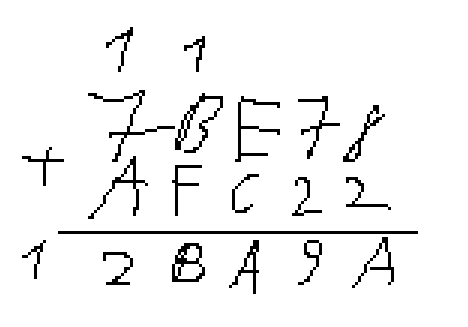 1 1
7 B E 7 8
+ A F C 2 2
1 2 B A 9 A